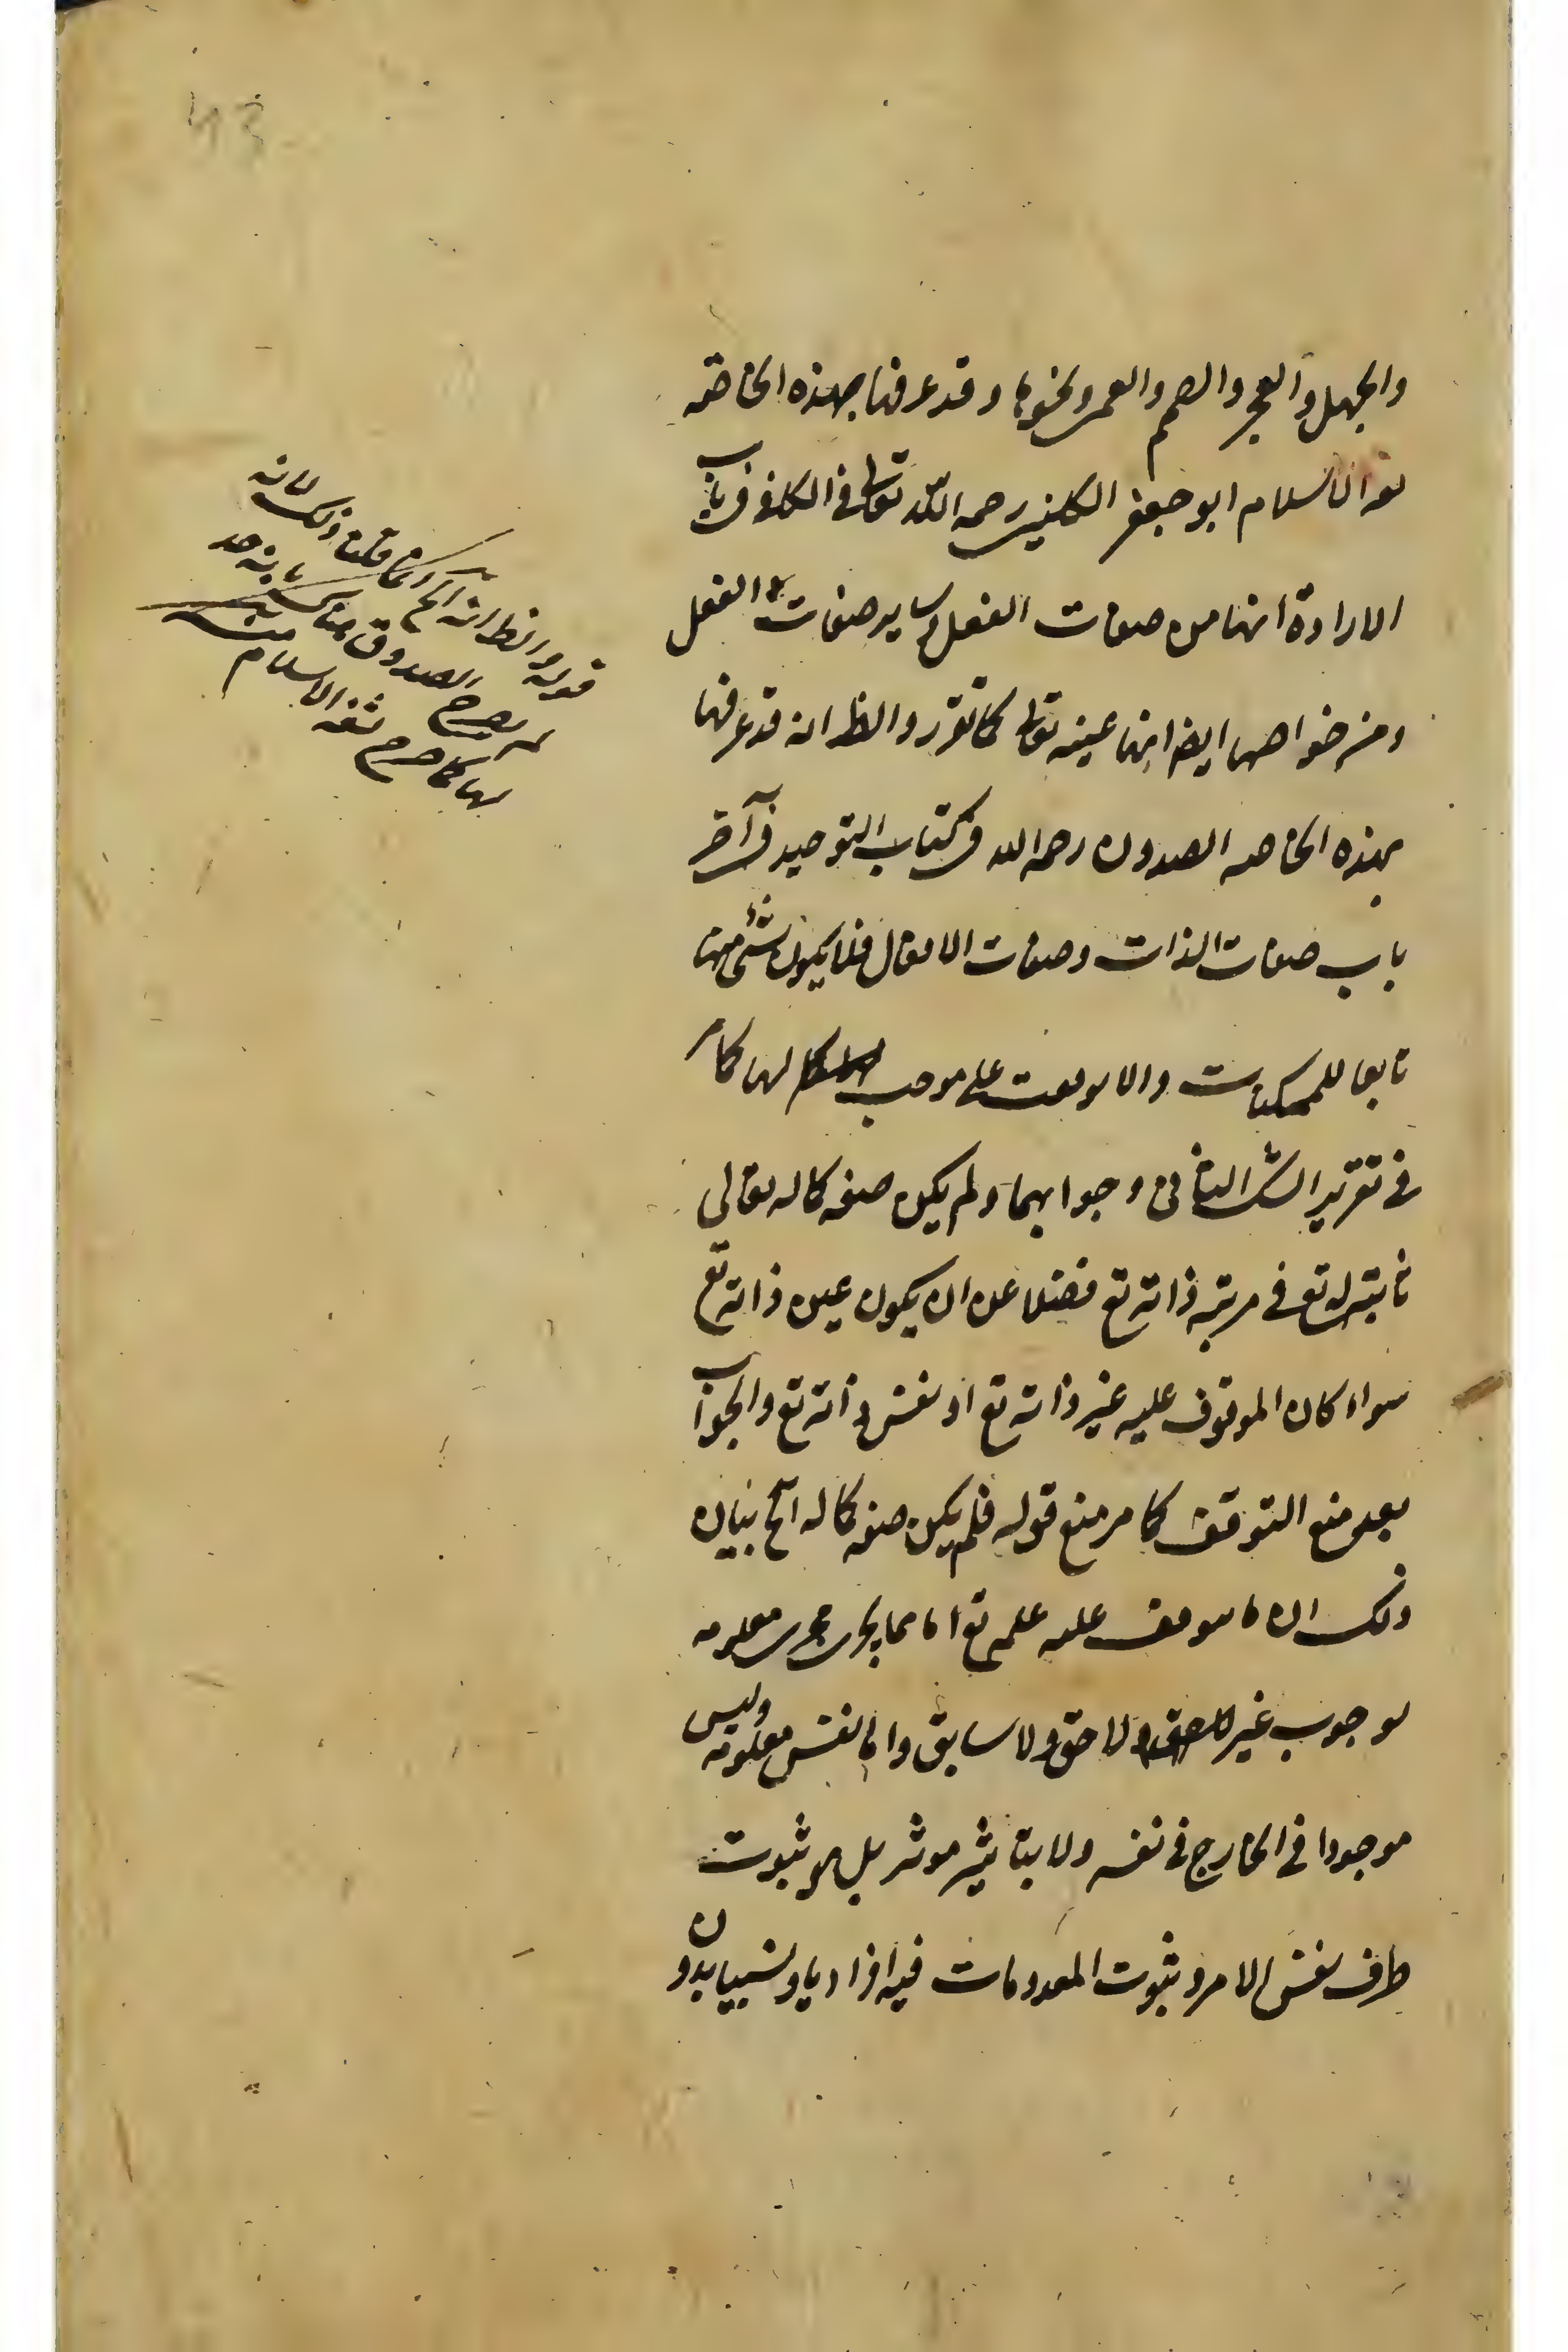 43
والجهل والعجز والصمم والعمى ونحوها وقد عرفها بهذه الخاصة
ثقة الاسلام ابو جعفر الكليني رحمه الله تعالى في الكافي في باب
الارادة انها من صفات الفعل وساير صفات الفعل
ومن خواصها ايضا انها عينه تعالى كما تقرر والظ انه قد عرفها
بهذه الخاصة الصدوق رحمه الله في كتاب التوحيد في آخر
باب صفات الذات وصفات الافعال فلا يكون شيء منها
تابعا للممكنات والا توقفت على موجب لها كما مر
في تقرير الشك الثاني وجوابهما ولم يكن صفة كماله تعالى
ثابتة له تع في مرتبة ذاته تع فضلا عن ان يكون عين ذاته تع
سواء كان الموقوف عليه غير ذاته تع او نفس ذاته تع والجواب
بعد منع التوقف كما مر منع قوله فلم يكن صفة كماله آلخ بيان
ذلك ان ما يتوقف عليه علمه تع اما مما يجري مجرى معلومه
بوجوب غير لاحق ولا سابق واما نفس معلومه وليس
موجودا في الخارج في نفسه ولا بتاثير موثر بل هو ثبوت
طرف نفس الامر وثبوت المعدومات فيه افراديا ونسبيا بدون
قوله والظ انه آلخ انما قلنا ذلك لانه
لم يصرح الصدوق هناك بانه حد
لها كما صرح ثقة الاسلام منه